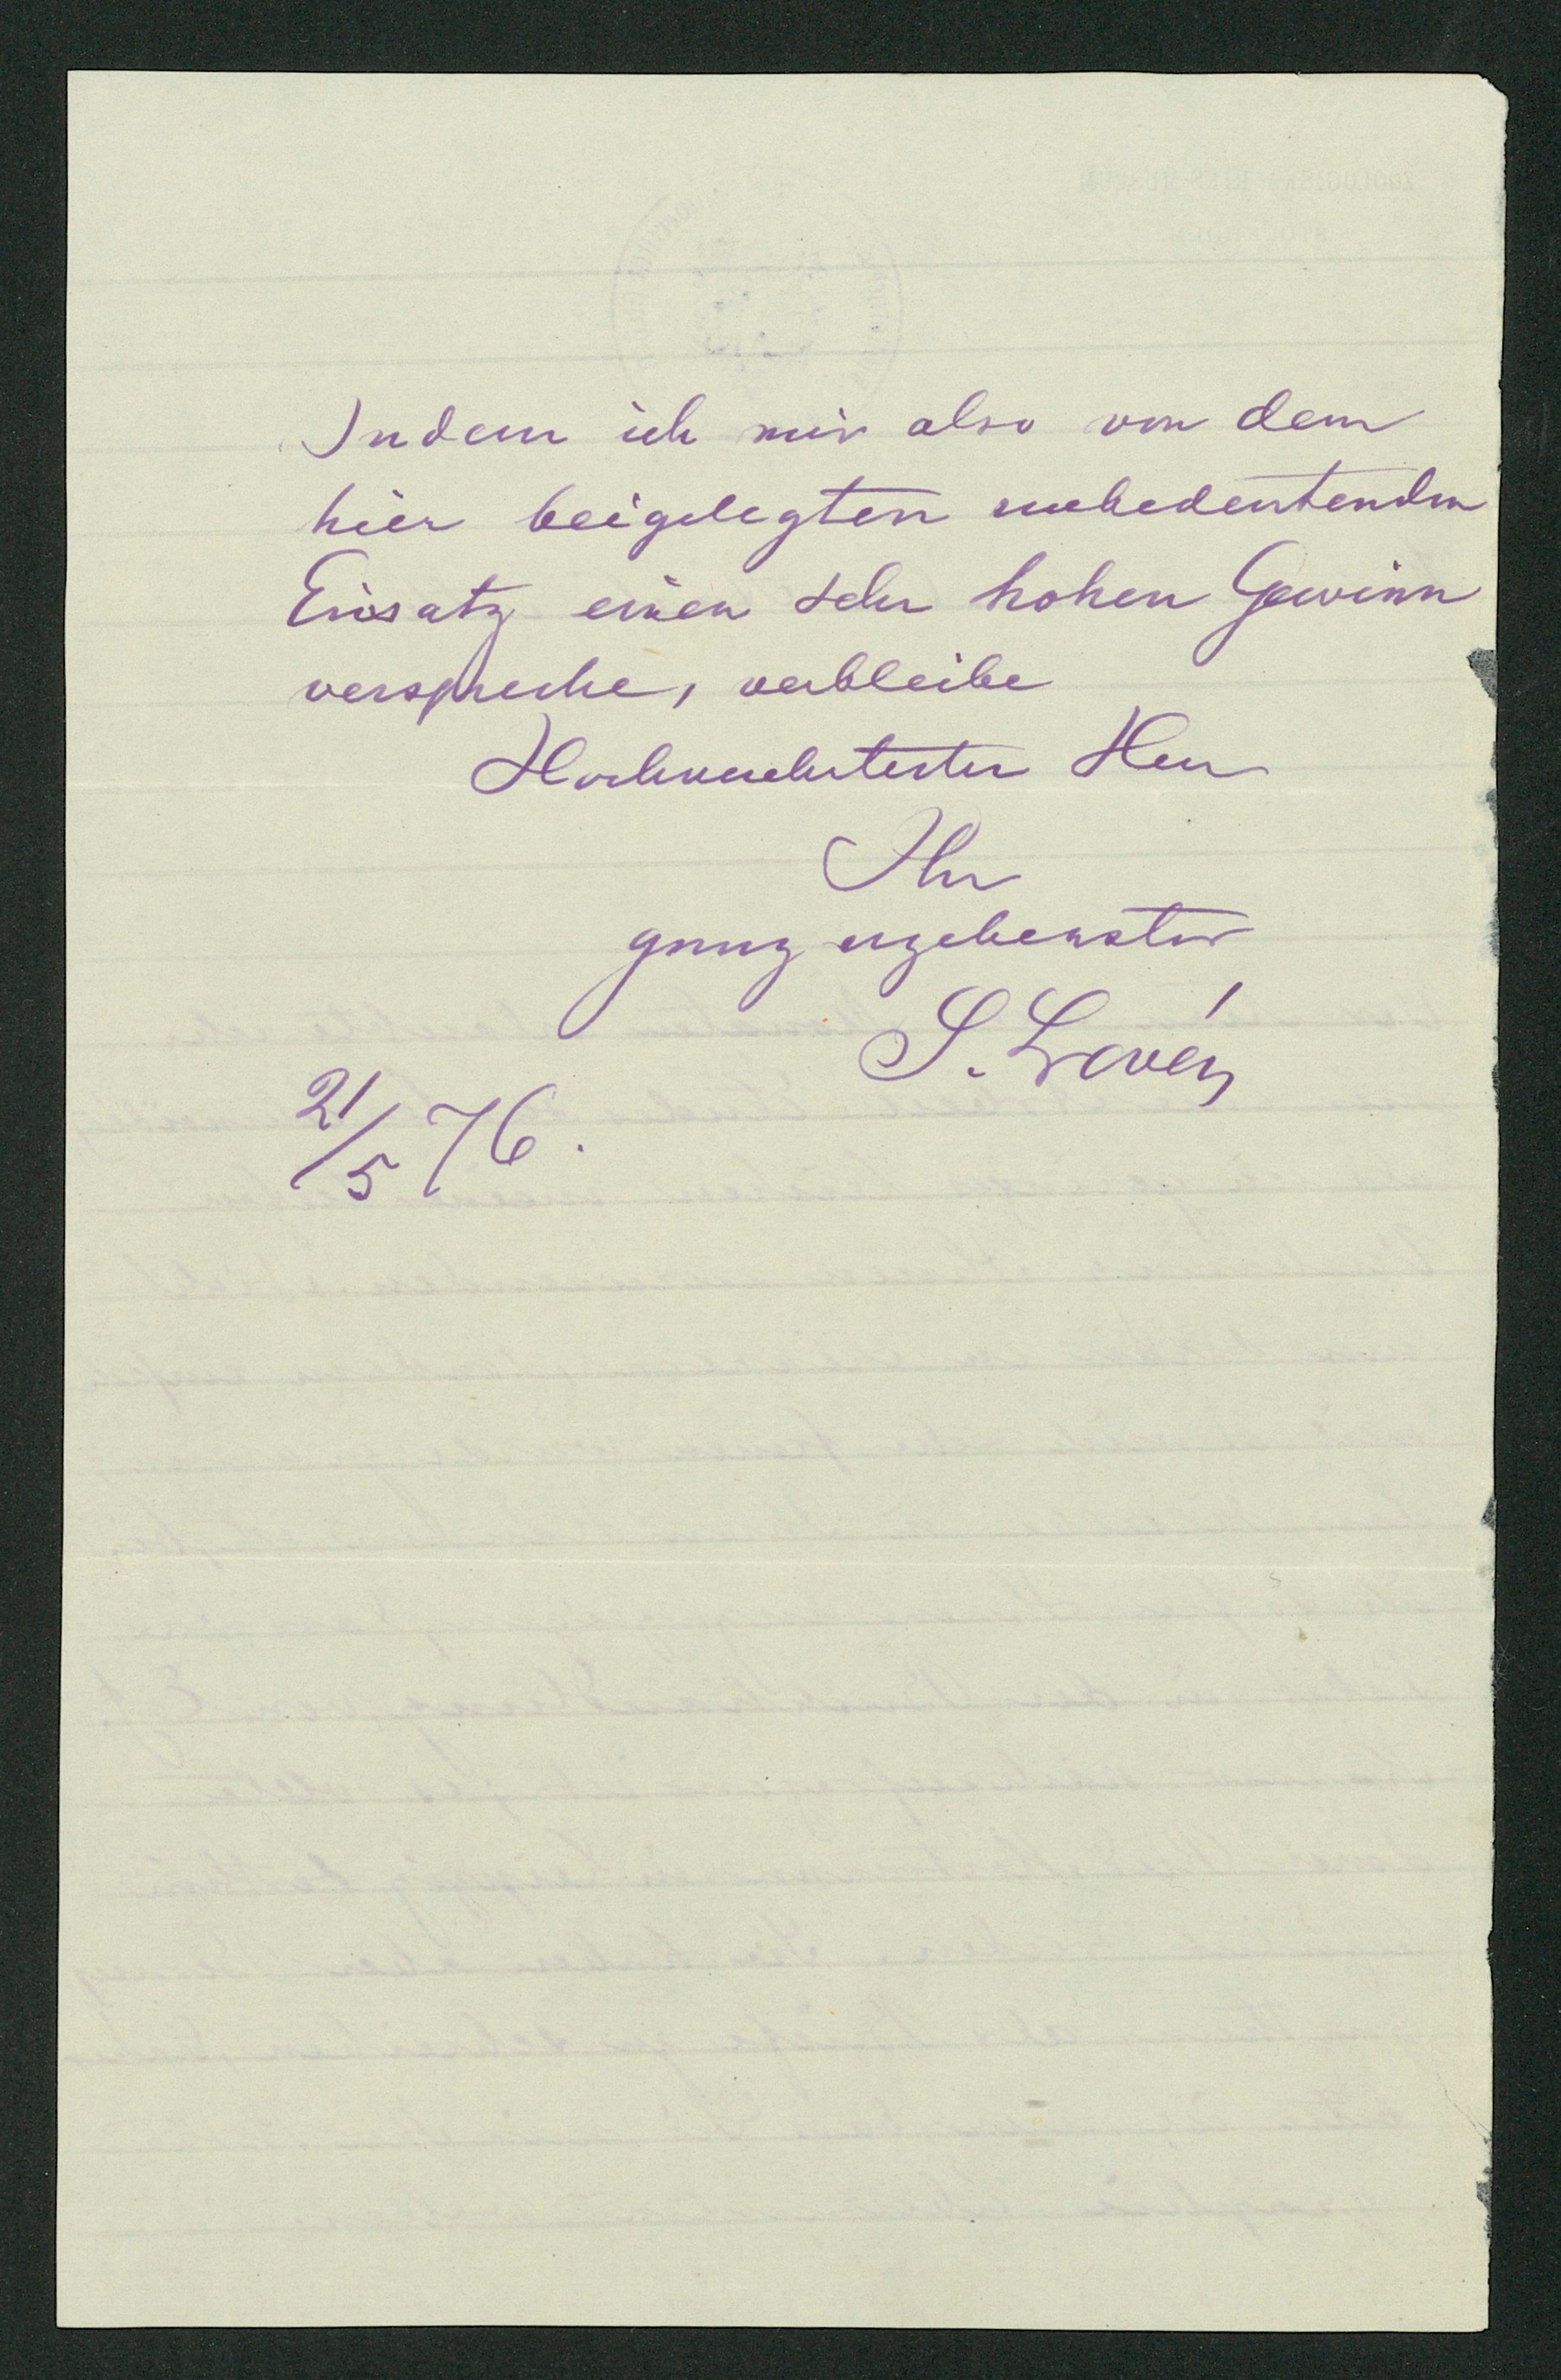 Indem ich mir also von dem
hier beigelegten unbedeutenden
Einsatz einen sehr hohen Gewinn
verspreche, verbleibe
Hochverehrtester Herr
Ihr
ganz ergebenster
S. Lovén
21/5 76.